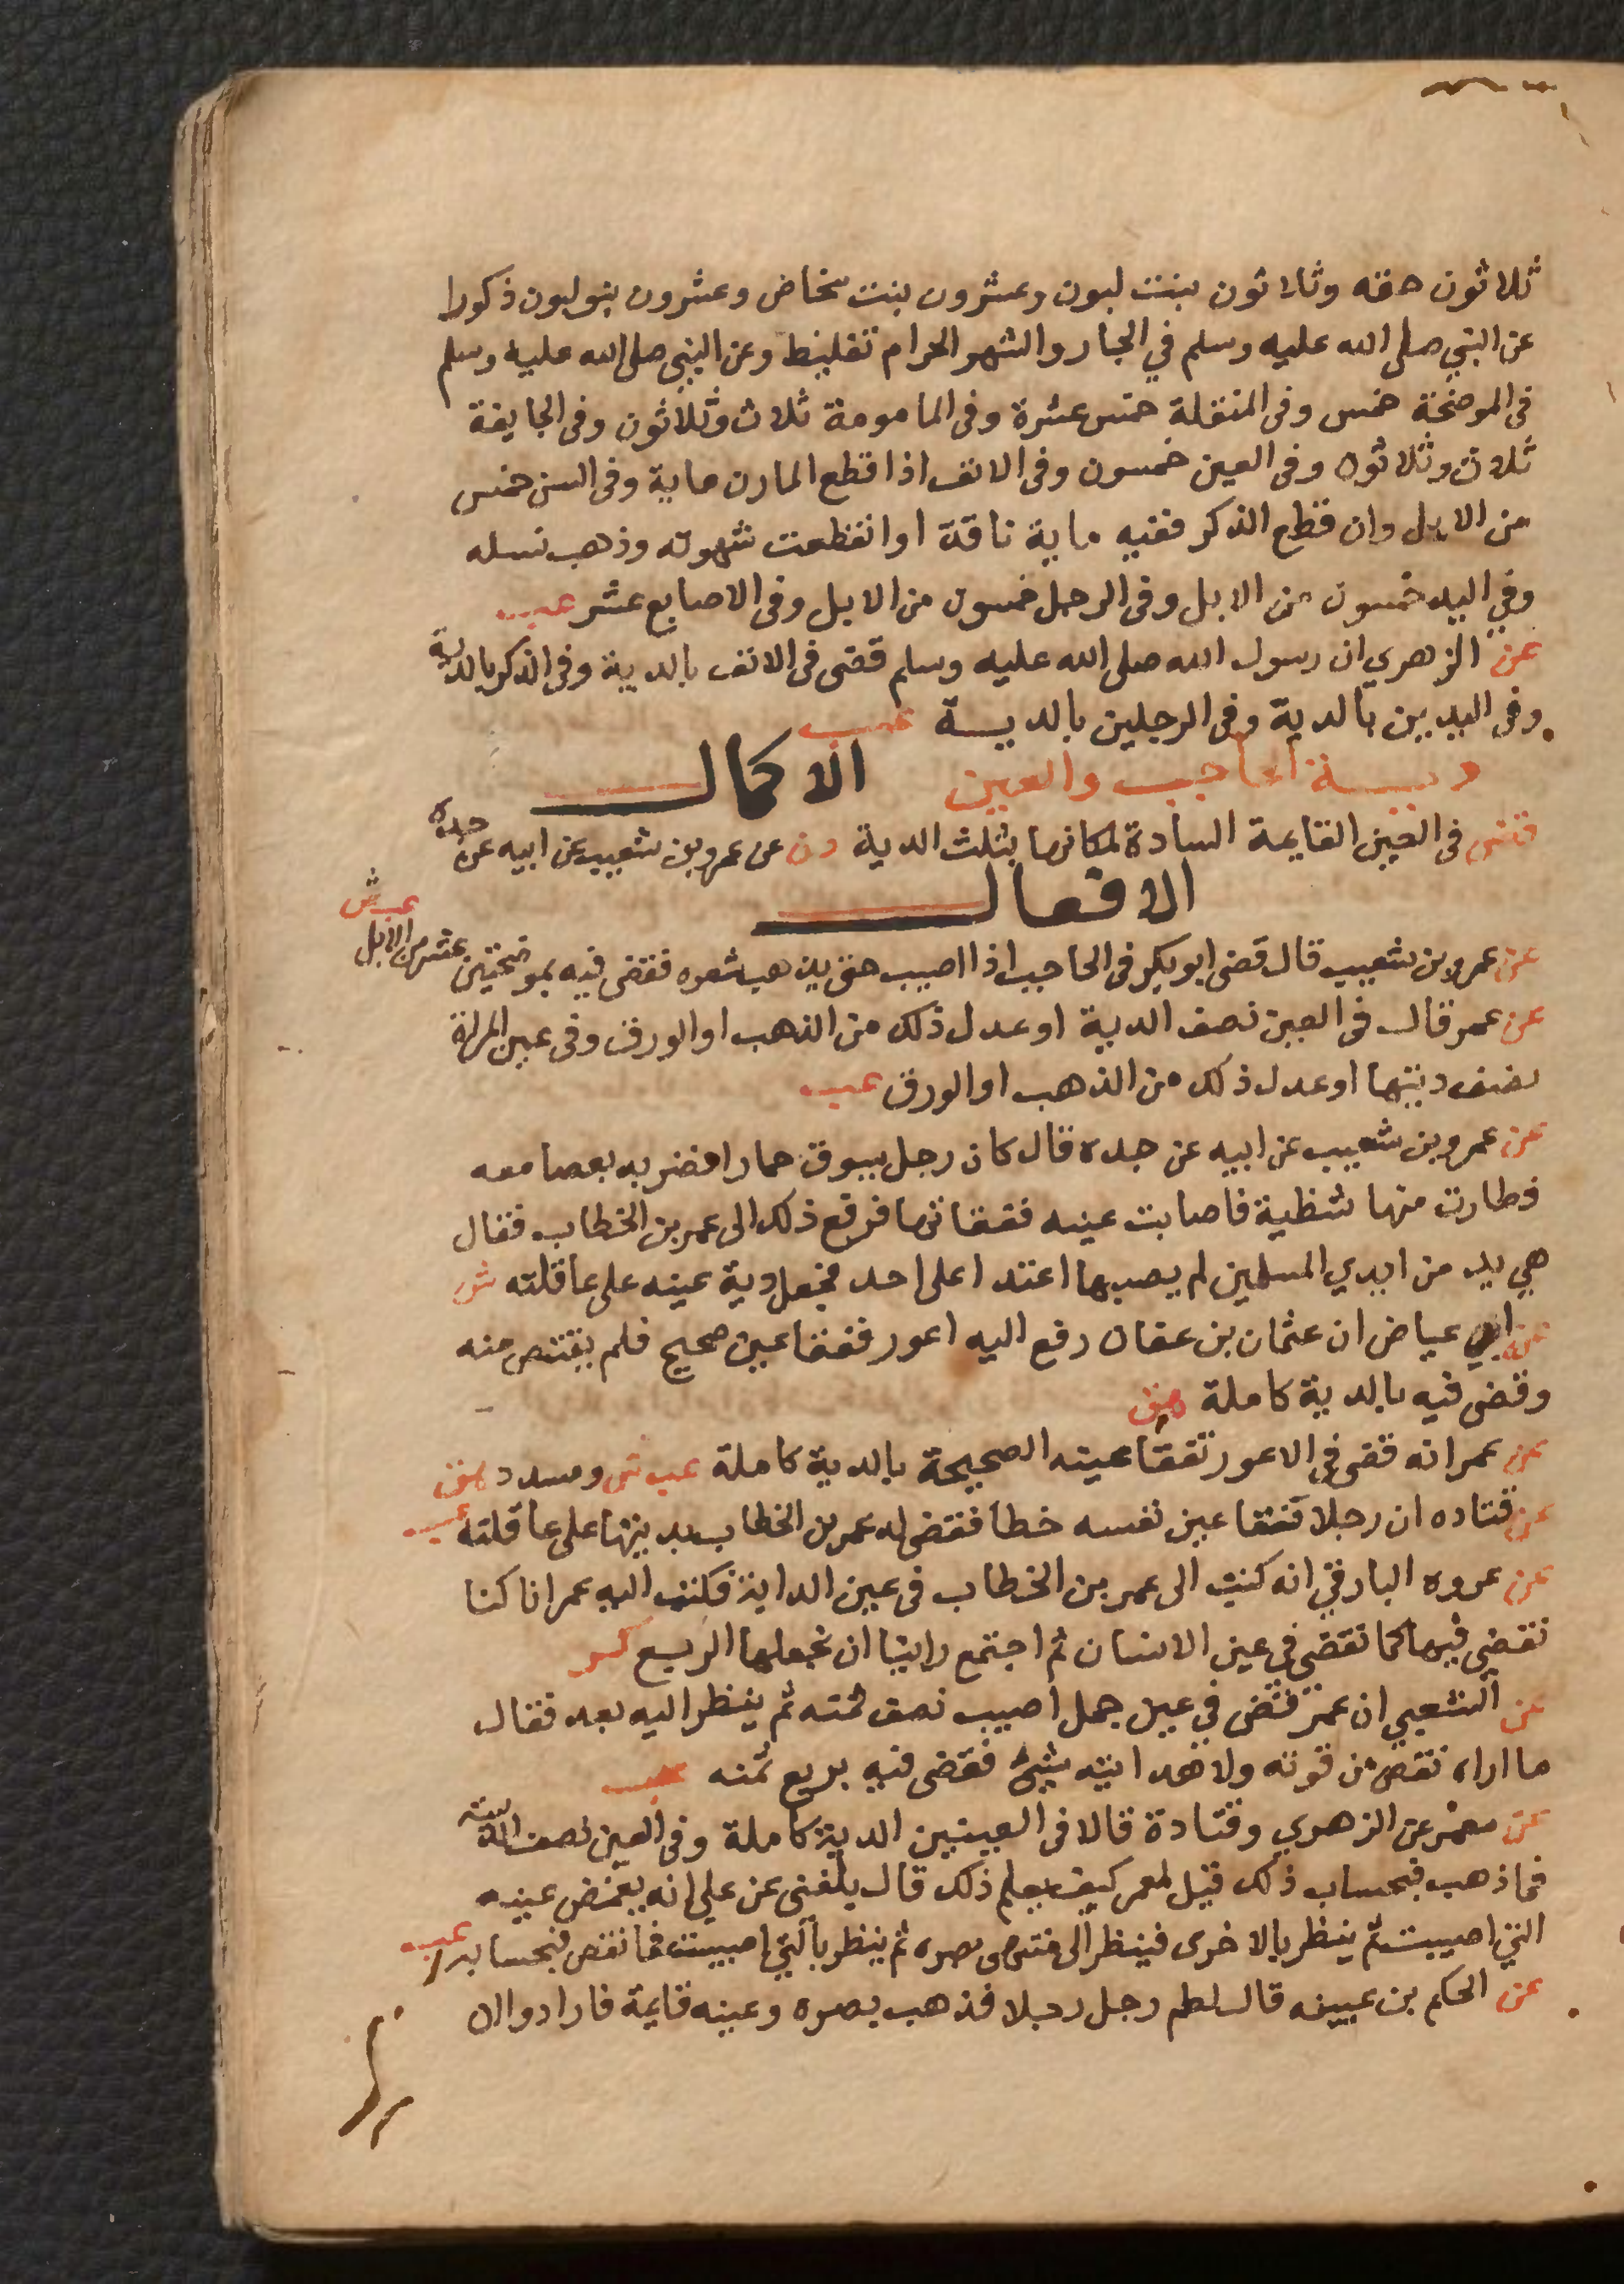 ثلاثون حقه وثلاثون بنت لبون وعشرون بنت مخاض وعشرون بنو لبون ذكورا
عن النبي صلى الله عليه وسلم في الجار والشهر الحرام تغليظ وعن النبي صلى الله عليه وسلم
فى الموضحة خمس وفى المنقلة خمس عشرة وفى المامومة ثلاث وثلاثون وفى الجايفة
ثلاث وثلاثون وفى العين خمسون وفى الانف اذا قطع المارن ماية وفى السن خمس
من الابل وان قطع الذكر ففيه ماية ناقة او انقطعت شهوته وذهب نسله
وفي اليد خمسون من الابل وفى الرجل خمسون من الابل وفى الاصابع عشر عب
عن الزهري ان رسول الله صلى الله عليه وسلم قضى فى الانف بالدية وفى الذكر بالدية
وفى اليدين بالدية وفى الرجلين بالدية عب
دية الحاجب والعين الاكمال
قضى فى العين القايمة السادة لمكانها بثلث الدية دن عن عمرو بن شعيب عن ابيه عن جده
الافعال
عن عمرو بن شعيب قال قضى ابو بكر فى الحاجب اذا اصيب حتى يذهب شعره فقضى فيه بموضحتين عشر من الابل عب ش
عن عمر قال فى العين نصف الدية او عدل ذلك من الذهب او الورق وفى عين المراة
نصف ديتها او عدل ذلك من الذهب او الورق عب
عن عمرو بن شعيب عن ابيه عن جده قال كان رجل يسوق حمارا فضربه بعصا معه
فطارت منها شظية فاصابت عينه ففقاتها فرفع ذلك الى عمر بن الخطاب فقال
هي يد من ايدي المسلمين لم يصبها اعتدا على احد فجعل دية عينه على عاقلته ش
عن ابي عياض ان عثمان بن عفان رفع اليه اعور ففقا عين صحيح فلم يقتص منه
وقضى فيه بالدية كاملة هق
عن عمر انه قضى في الاعور تفقا عينه الصحيحة بالدية كاملة عب ش ومسدد هق
عن قتاده ان رجلا فقا عين نفسه خطا فقضى له عمر بن الخطاب بديتها على عاقلته عب
عن عروه البارقي انه كتب الى عمر بن الخطاب فى عين الدابة فكتب اليه عمر انا كنا
نقضي فيها كما نقضي في عين الانسان ثم اجتمع راينا ان نجعلها الربع كر
عن الشعبي ان عمر قضى في عين جمل اصيب نصف ثمنه ثم ينظر اليه بعد فقال
ما اراه نقص من قوته ولا هدايته شئ فقضى فيه بربع ثمنه عب
عن معمر عن الزهري وقتادة قالا فى العينين الدية كاملة وفى العين نصف الدية
فما ذهب فبحساب ذلك قيل لمعمر كيف يعلم ذلك قال بلغنى عن علي انه يغمض عينه
التي اصيبت ثم ينظر بالاخرى فينظر الى منتهى بصره ثم ينظر بالتي اصيبت فما نقص فبحسابه عب
عن الحكم بن عيينه قال لطم رجل رجلا فذهب بصره وعينه قايمة فارادوا ان